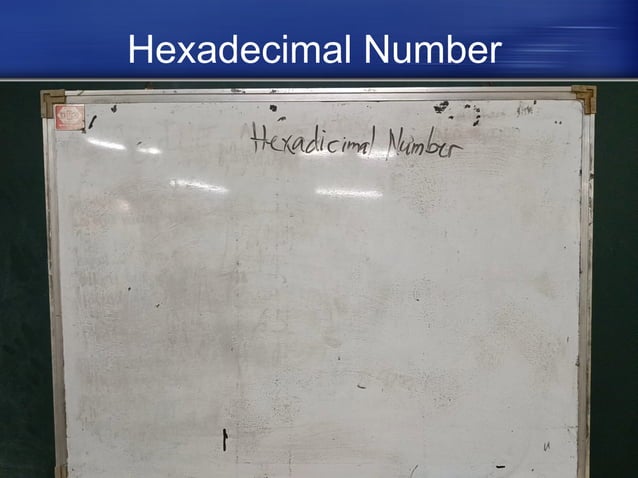 Hexadecimal Number
Hexadicimal Number